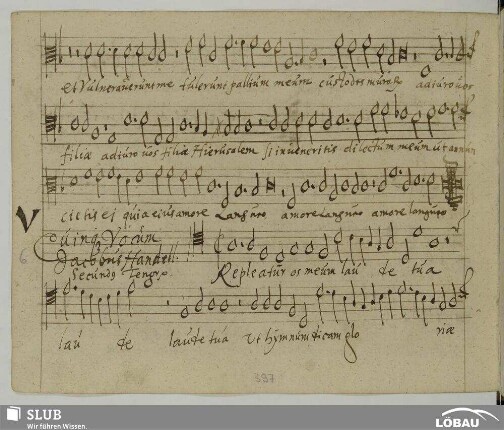 et vulneraverunt me tulerunt pallium meum custodes muro adiuro vos
filiæ adiuro vos filiæ Hierusalem si inveneritis dilectum meum ut annun
cietis ei quia eius amore Langueo amore Langueo amore langueo
V
Quinq Vocum
Jacobus Handel:
6
Secundus Tenor
Repleatur os meum lau de tua
lau de laude tua Ut hymnum dicam glo riæ
397
SLUB
Wir führen Wissen.
LÖBAU